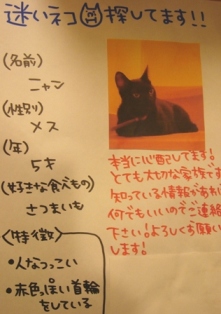 迷いネコ探してます!!
(名前)
ニャン
(性別)
メス
(年)
5才
(好きな食べもの)
さつまいも
<特徴>
•人なつっこい
•赤色っぽい首輪
をしている
本当に心配してます!
とても大切な家族です
知っている情報があれば
何でもいいのでご連絡
下さい!よろしくお願い
します!